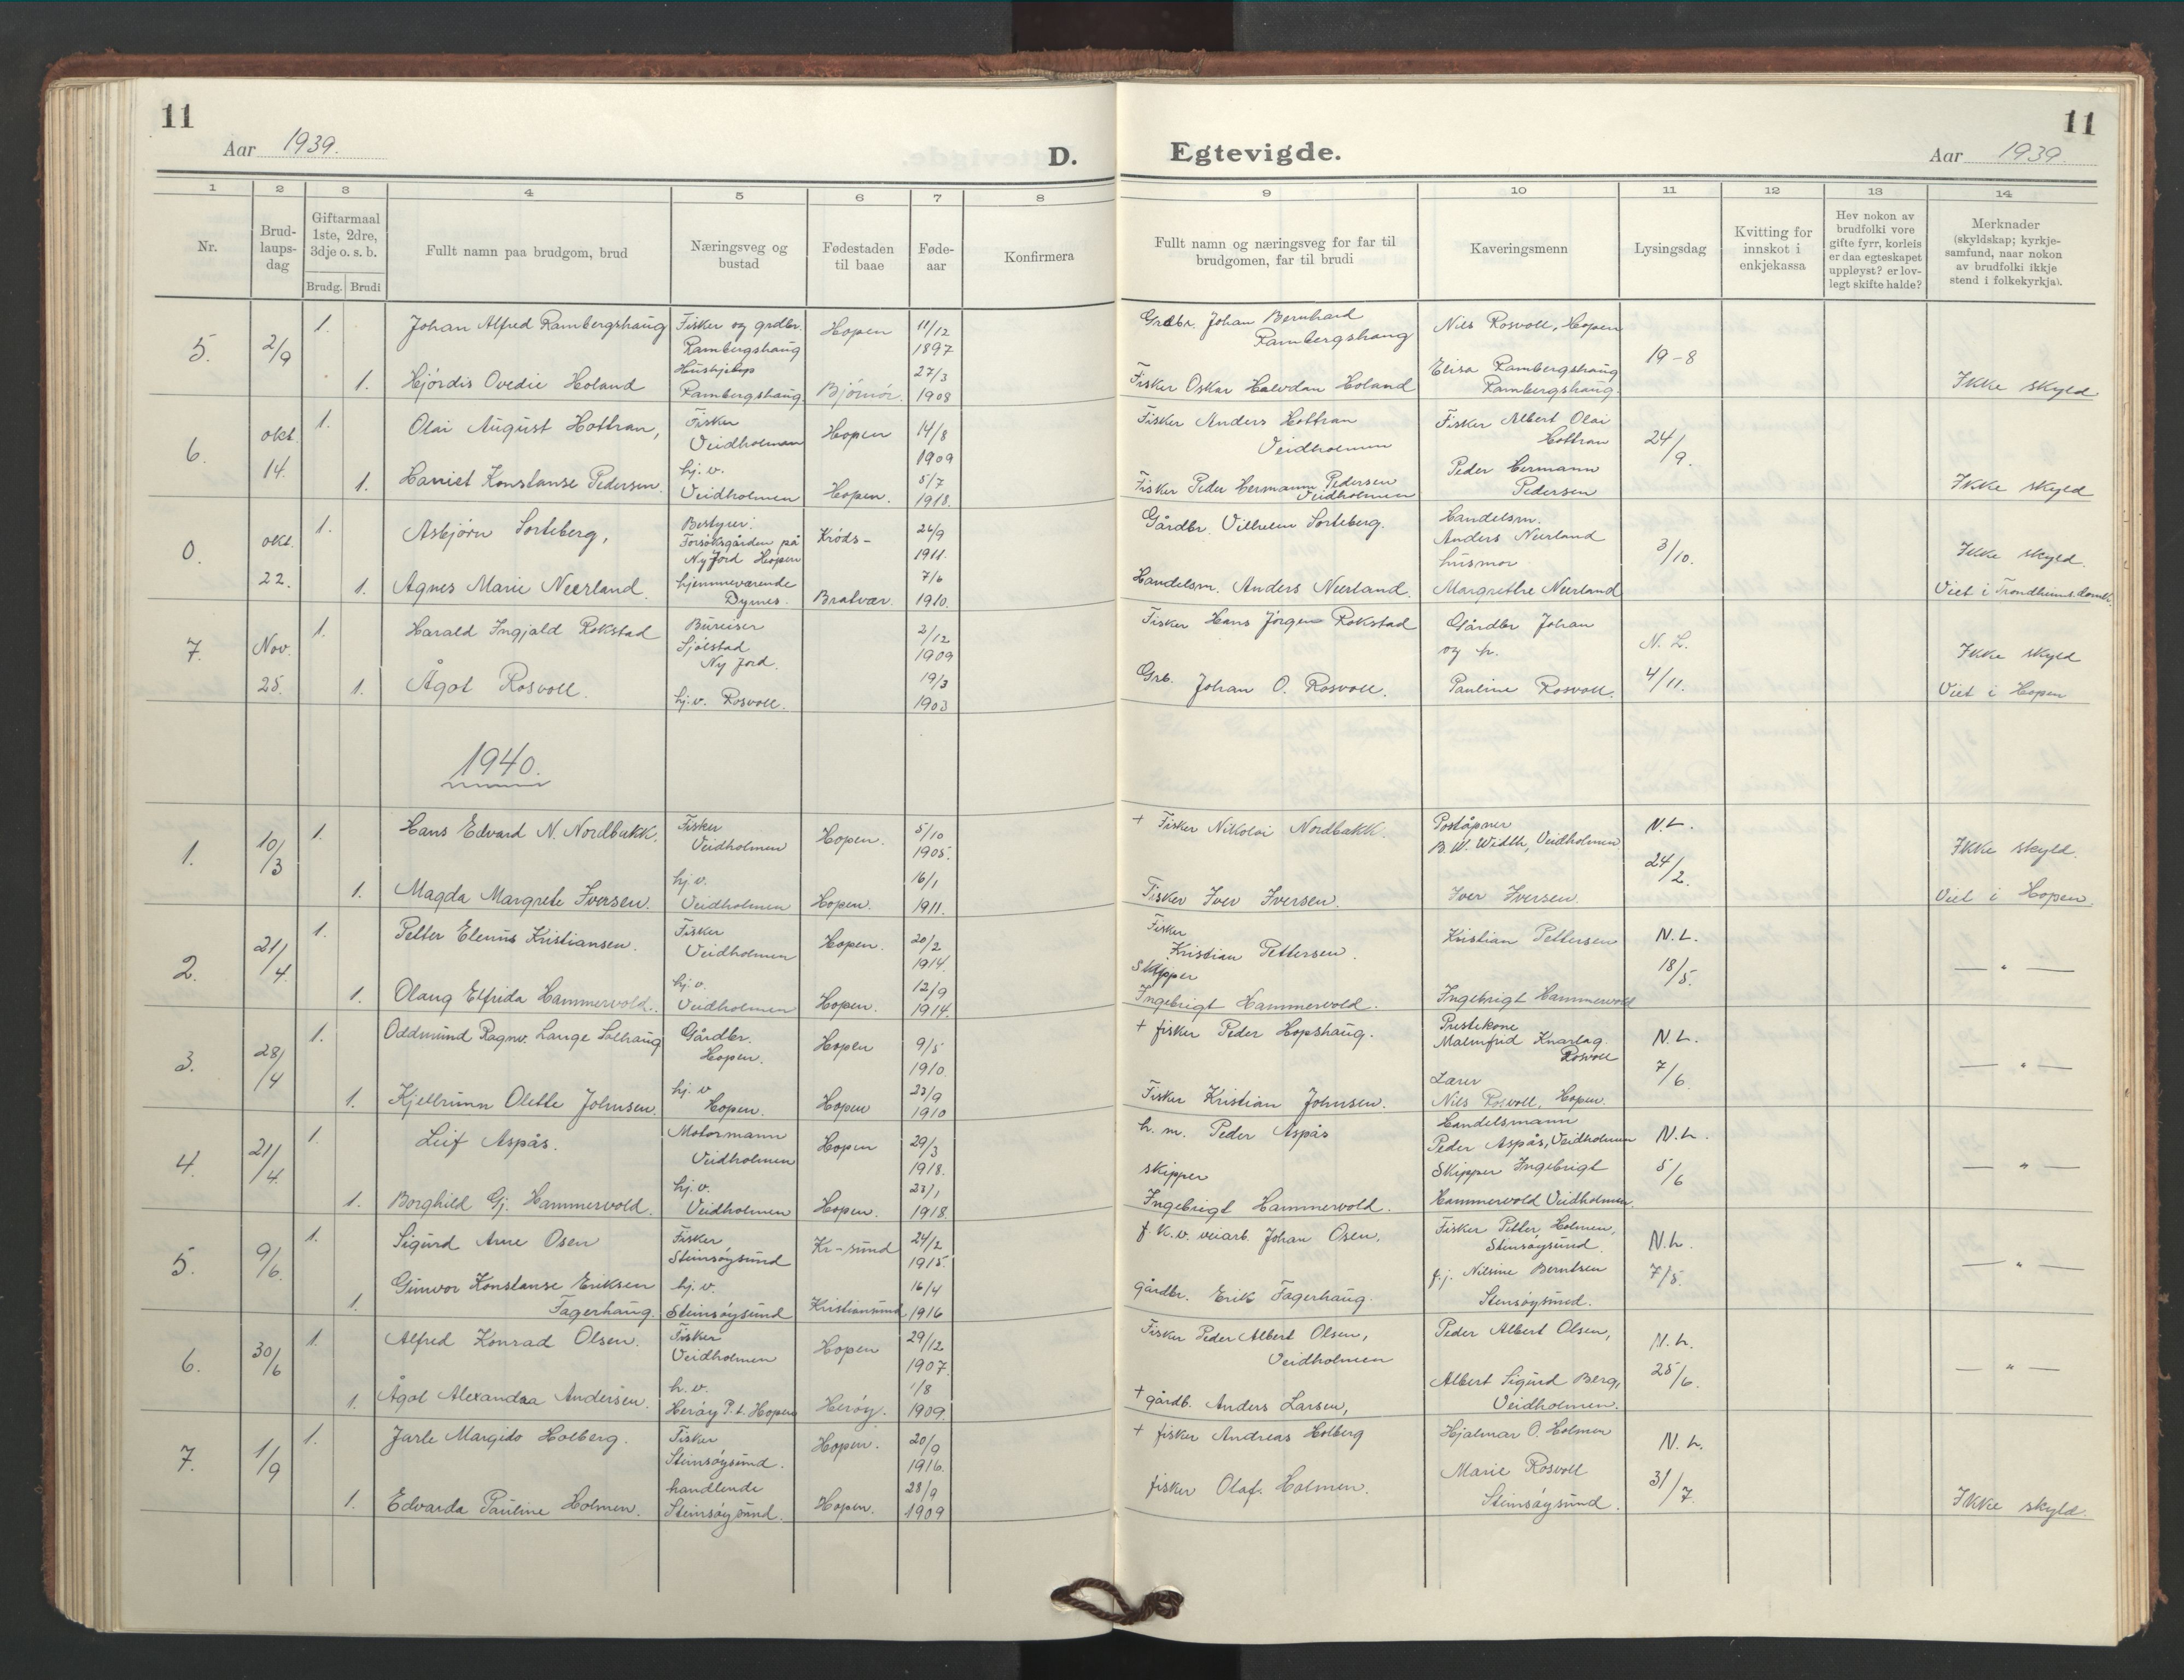 11
Aar 1939.
D.
Egtevigde.
Aar 1939
11
1 2 3 4 5 6 7 8 9 10 11 12 13 14
Nr.
Brud-
laups-
dag
Giftarmaal
1ste, 2dre,
3dje o. s. b.
Brudg. Brudi
Fullt namn paa brudgom, brud
Næringsveg og
bustad
Fødestaden
til baae
Føde-
aar
Konfirmera
Fullt namn og næringsveg for far til
brudgomen, far til brudi
Kaveringsmenn
Lysingsdag
Kvitting for
innskot i
enkjekassa
Hev nokon av
brudfolki vore
gifte fyrr, korleis
er daa egteskapet
uppløyst? er lov-
legt skifte halde?
Merknader
(skyldskap; kyrkje-
samfund, naar nokon
av brudfolki ikkje
stend i folkekyrkja).
5. 2/9
1. Johan Alfred Rambergshaug Fisker og grdbr. Rambergshaug Hopen 11/12 1897 Grdbr. Johan Bernhard Rambergshaug Nils Rosvoll, Hopen 19-8
1. Hjördis Ovedie Holand Hushjelp Rambergshaug. Björnör. 27/3 1908 Fisker Oskar Halvdan Holand Elisa Rambergshaug Rambergshaug. Ikke skyld
6. okt. 14.
1. Olai August Hottran, Fisker Veidholmen Hopen 14/8 1909 Fisker Anders Hottran Veidholmen Fisker Albert Olai Hottran 24/9.
1. Harriet Konstanse Pedersen. hj. v. Veidholmen Hopen. 5/7 1918. Fisker Peder Hermann Pedersen Veidholmen Peder Hermann Pedersen Ikke skyld
0. okt. 22.
1. Asbjørn Sorteberg, Bestyrer: Forsøksgården på Ny Jord Hopen Kröds- 26/9 1911. Gårdbr. Vilhelm Sorteberg. Handelsm. Anders Neerland 3/10. Ikke skyld.
1. Agnes Marie Neerland. hjemmeværende Dyrnes. Bratvær. 7/6 1910. Handelsm. Anders Neerland. husmor Margrethe Neerland Viet i Trondheims domk.
7. Nov. 25.
1. Harald Ingjald Rokstad Bureiser Sjölstad Ny Jord. 2/12 1909 Fisker Hans Jörgen Rokstad Gårdbr Johan og h. N. L. Ikke skyld
1. Ågot Rosvoll. hj. v. Rosvoll. 19/3 1903 Grb. Johan O. Rosvoll. Pauline Rosvoll. 4/11. Viet i Hopen
1940.
1. 10/3
1. Hans Edvard N. Nordbakk. Fisker Veidholmen Hopen. 5/10 1905. + Fisker Nikolai Nordbakk. Poståpner B. W. Width, Veidholmen N.L. 24/2. Ikke skyld.
1. Magda Margrete Iversen. hj. v. Veidholmen Hopen. 16/1 1911. Fisker Iver Iversen. Iver Iversen. Viet i Hopen.
2. 21/4.
1. Petter Elenus Kristiansen. Fisker Veidholmen Hopen. 20/2 1914. Fisker Kristian Pettersen. Kristian Pettersen N.L. 18/5. — " —
1. Olaug Elfrida Hammervold. hj. v. Veidholmen Hopen. 12/9 1914. Skipper Ingebrigt Hammervold. Ingebrigt Hammervold
3. 28/4
1. Oddmund Ragnv. Lange Solhaug Gårdbr. Hopen. Hopen 9/5 1910 + fisker Peder Hopshaug. Prestekone Malmfrid Knarlag Rosvoll N.L. 7/6. — " —
1. Kjellrunn Olette Johnsen. hj. v Hopen. Hopen 23/9 1910 Fisker Kristian Johnsen. Lærer Nils Rosvoll, Hopen.
4. 21/4.
1. Leif Aspås. Motormann Veidholmen Hopen 29/3 1918. h. m. Peder Aspås Handelsmann Peder Aspås, Veidholmen N.L. 5/6 — " —
1. Borghild Gj. Hammervold. hj. v. Veidholmen Hopen. 23/1 1918. skipper Ingebrigt Hammervold. Skipper Ingebrigt Hammervold Veidholmen.
5. 9/6.
1. Sigurd Arne Osen Fisker, Steinsöysund Kr-sund 24/2 1915. f. k. v. veiarb. Johan Osen. Fisker Petter Holmen, Steinsöysund. N.L. 7/5. — " —
1. Gunvor Konstanse Eriksen Fagerhaug. hj. v. Steinsöysund Kristiansund 16/4 1916 gårdbr. Erik Fagerhaug. f.j. Nilsine Berntsen Stensöysund.
6. 30/6
1. Alfred Konrad Olsen. Fisker Veidholmen Hopen 29/12 1907. Fisker Peder Albert Olsen, Veidholmen Peder Albert Olsen, N.L. 25/6. — " —
1. Ågot Alexandra Andersen. h. v. Heröy P.t. Hopen Heröy. 1/8 1909. + gårdb. Anders Larsen, Albert Sigurd Berg, Veidholmen.
7. 1/9
1. Jarle Margido Holberg. Fisker Steinsöysund. Hopen. 20/9 1916. + fisker Andreas Holberg Hjalmar O. Holmen N.L. 31/7.
1. Edvarda Pauline Holmen. handlende Steinsöysund. Hopen. 28/9 1909 fisker Olaf. Holmen. Marie Rosvoll Steinsöysund. Ikke skyld.